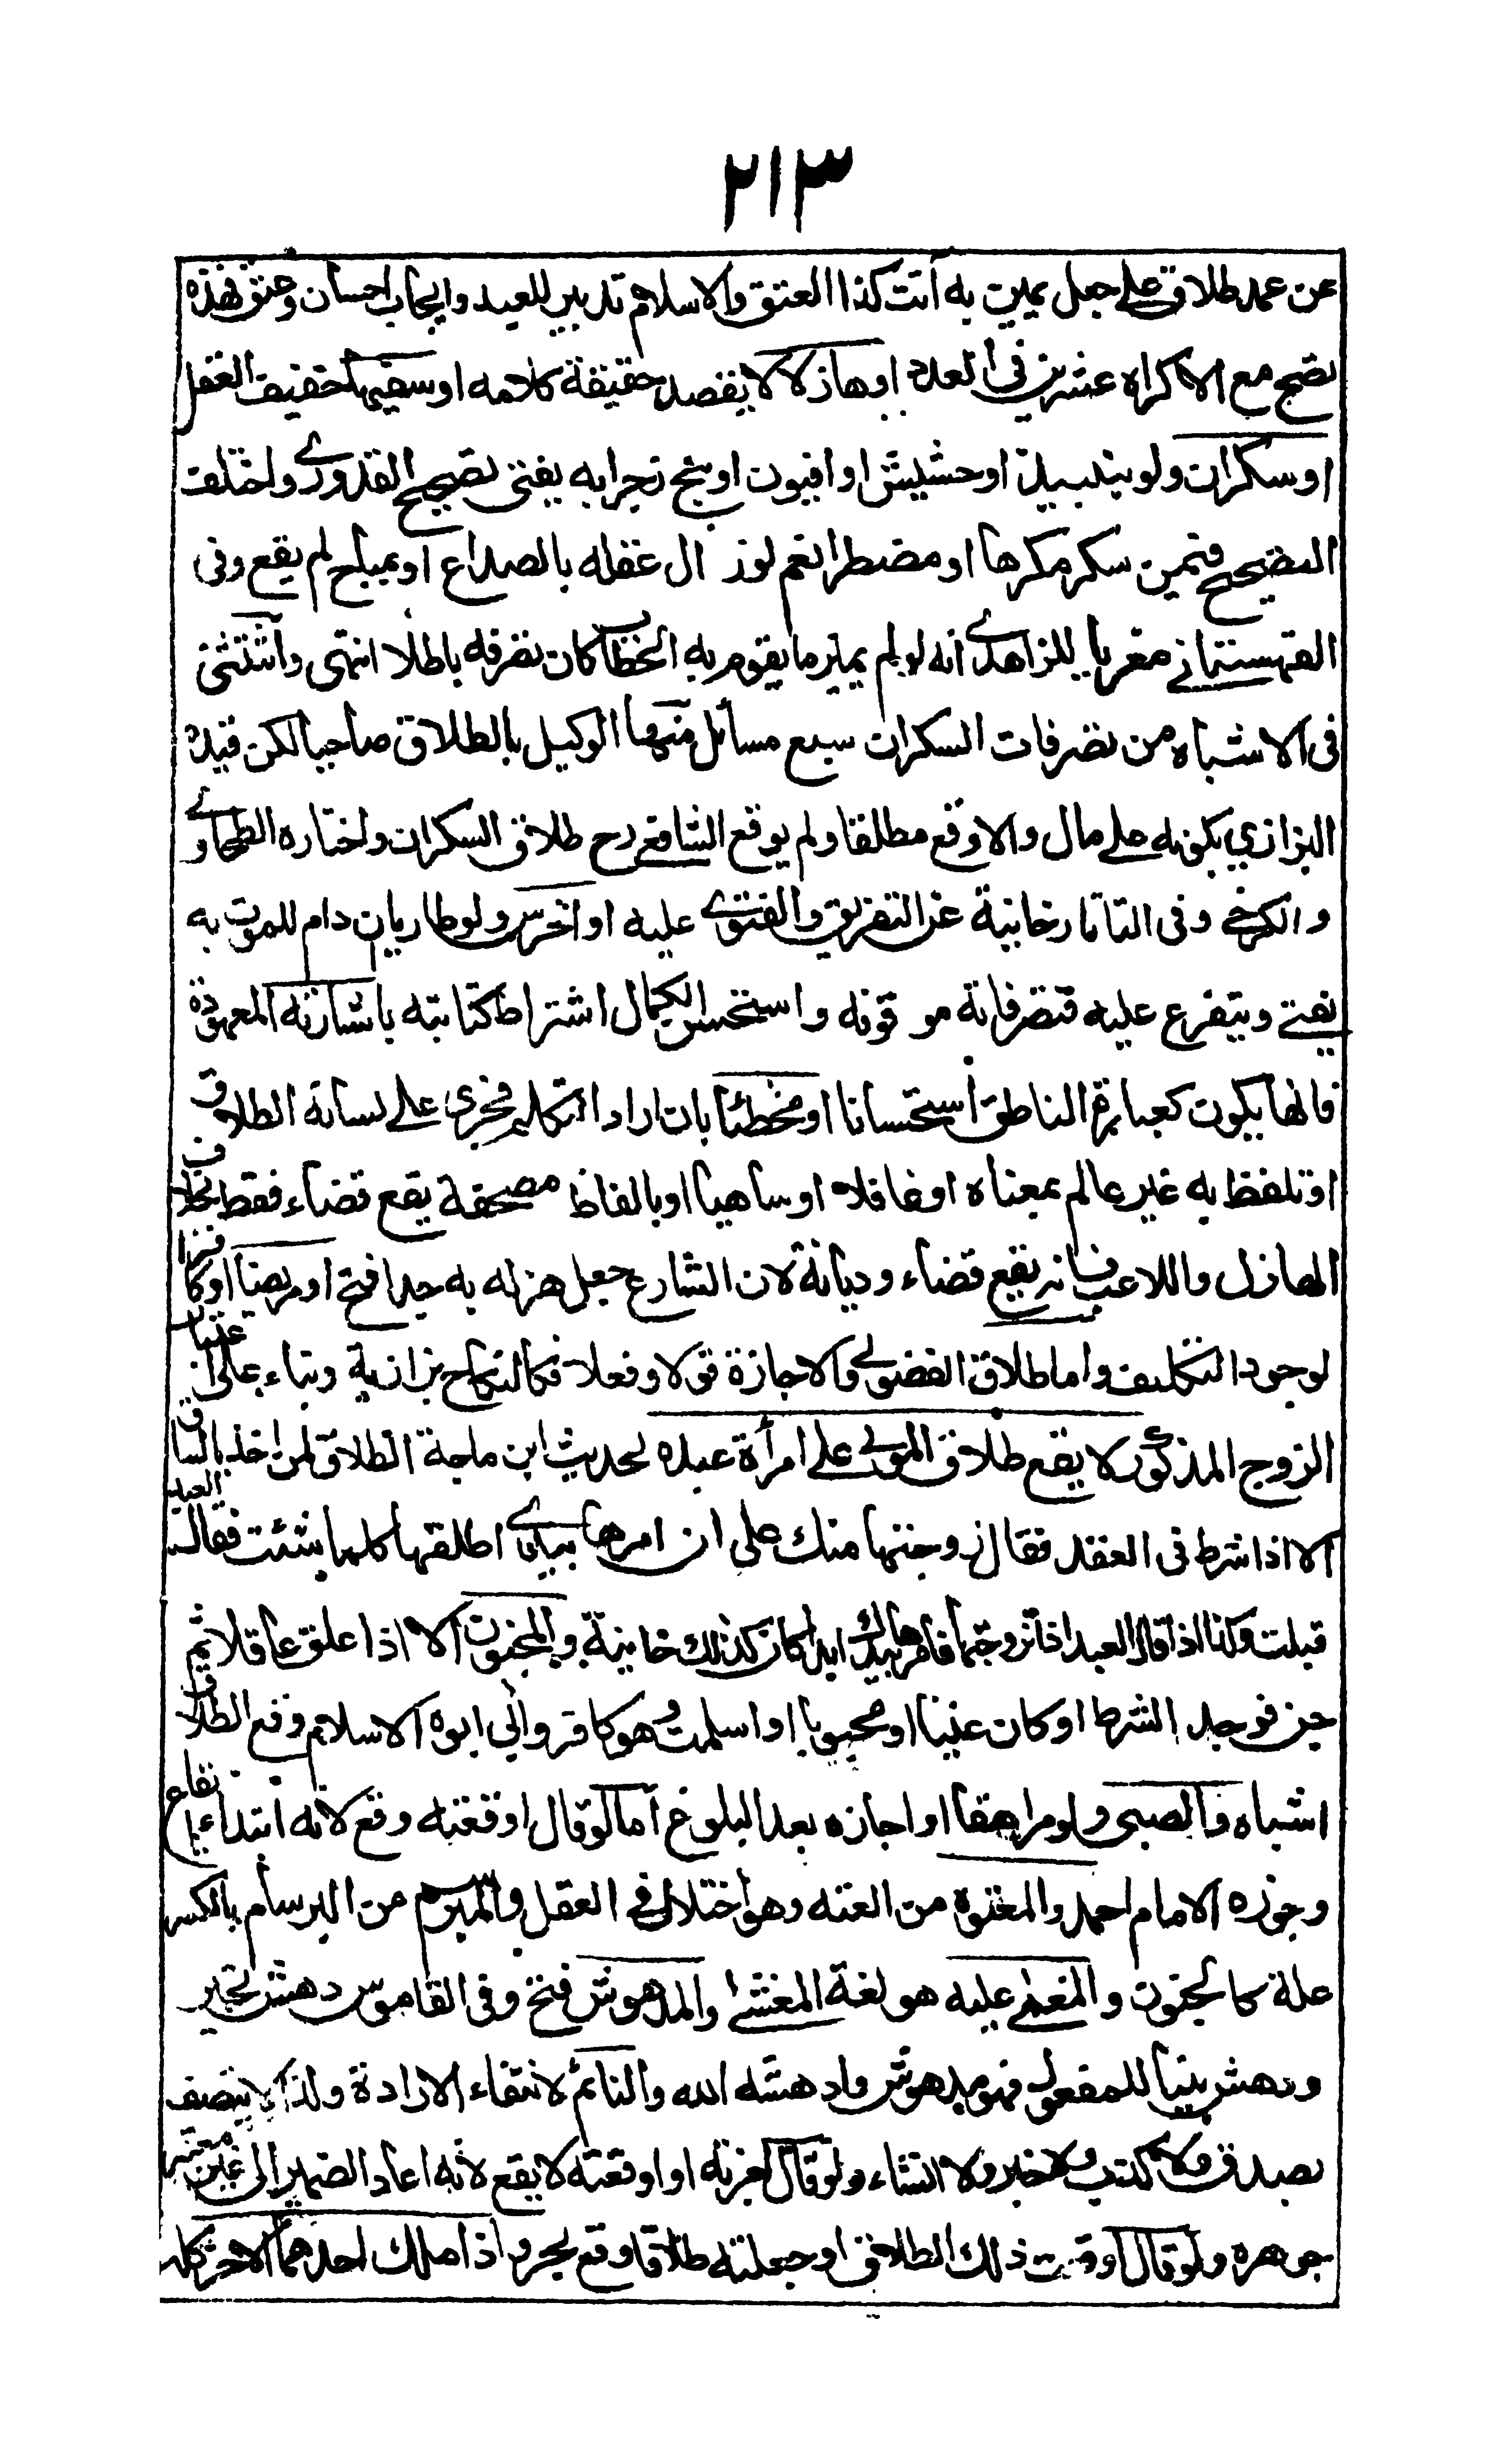 ٢١٣
عن عمد طلاق على جعل يمين به أتت كذا العتق والاسلام تدبير للعبد وايجاب احسان وعتق فهذه
تصح مع الاكراه عشرين في العدد او هازلا لا يقصد حقيقة كلامه او سفيها خفيف العقل
او سكران ولو بنبيذ او حشيش او افيون او بنج زجرا به يفتى تصحيح القدوري واختلف
التصحيح فيمن سكر مكرها او مضطرا نعم لو زال عقله بالصداع او بمباح لم يقع وفي
القهستاني معزيا للزاهدي انه لو لم يميز ما يقوم به الخطاب كان تصرفه باطلا انتهى واستثنى
في الاشباه من تصرفات السكران سبع مسائل منها الوكيل بالطلاق صاحيا لكن قيده
البزازي بكونه على مال والا وقع مطلقا ولم يوقع الشافعي رح طلاق السكران واختاره الطحاوي
والكرخي وفي التاتارخانية عن التفريق والفتوى عليه او اخرس ولو طاريا ان دام للموت به
يفتى ويتفرع عليه فتصرفاته موقوفة واستحسن الكمال اشتراط كتابته باشارته المعهودة
فانها يكون كعبارة الناطق استحسانا او مخطئا بان اراد التكلم فجرى على لسانه الطلاق
او تلفظ به غير عالم بمعناه او غافلا او ساهيا او بالفاظ مصحفة يقع قضاء فقط بخلاف
الهازل واللاعب فانه يقع قضاء وديانة لان الشارع جعل هزله به جدا فتح او مريضا او كافرا
لوجود التكليف واما طلاق الفضولي والاجازة قولا وفعلا فكالنكاح بزازية وبناء على اعتبار
الزوج المذكور لا يقع طلاق المولى على امرأة عبده لحديث ابن ماجة الطلاق لمن اخذ بالساق
الا اذا شرط في العقد فقال زوجتها منك على ان امرها بيدي اطلقها كلما شئت فقال العبد
قبلت وكذا اذا قال العبد اذا تزوجتها فامرها بيدك ابدا كان كذلك خانية والمجنون الا اذا علق عاقلا ثم
جن فوجد الشرط او كان عنينا او مجبوبا او اسلمت وهو كافر وابي ابوه الاسلام وقع الطلاق
اشباه والصبي ولو مراهقا او اجازه بعد البلوغ اما لو قال اوقعته وقع لانه ابتداء ايقاع
وجوزه الامام احمد والمعتوه من العته وهو اختلال في العقل والمبرسم من البرسام بالكسر
علة كالجنون والمغمى عليه هو لغة المغشى والمدهوش فتح وفي القاموس دهش تحير
ودهش بنيا للمفعول فهو مدهوش وادهشه الله والنائم لانتفاء الارادة ولذا لا يتصف
بصدق ولا كذب ولا خبر ولا انشاء ولو قال اجزته او اوقعته لا يقع لانه اعاد الضمير الى غير معتبر
جوهره ولو قال اوقعت ذلك الطلاق او جعلته طلاقا وقع بحر واذا ملك احدهما الاخر كله